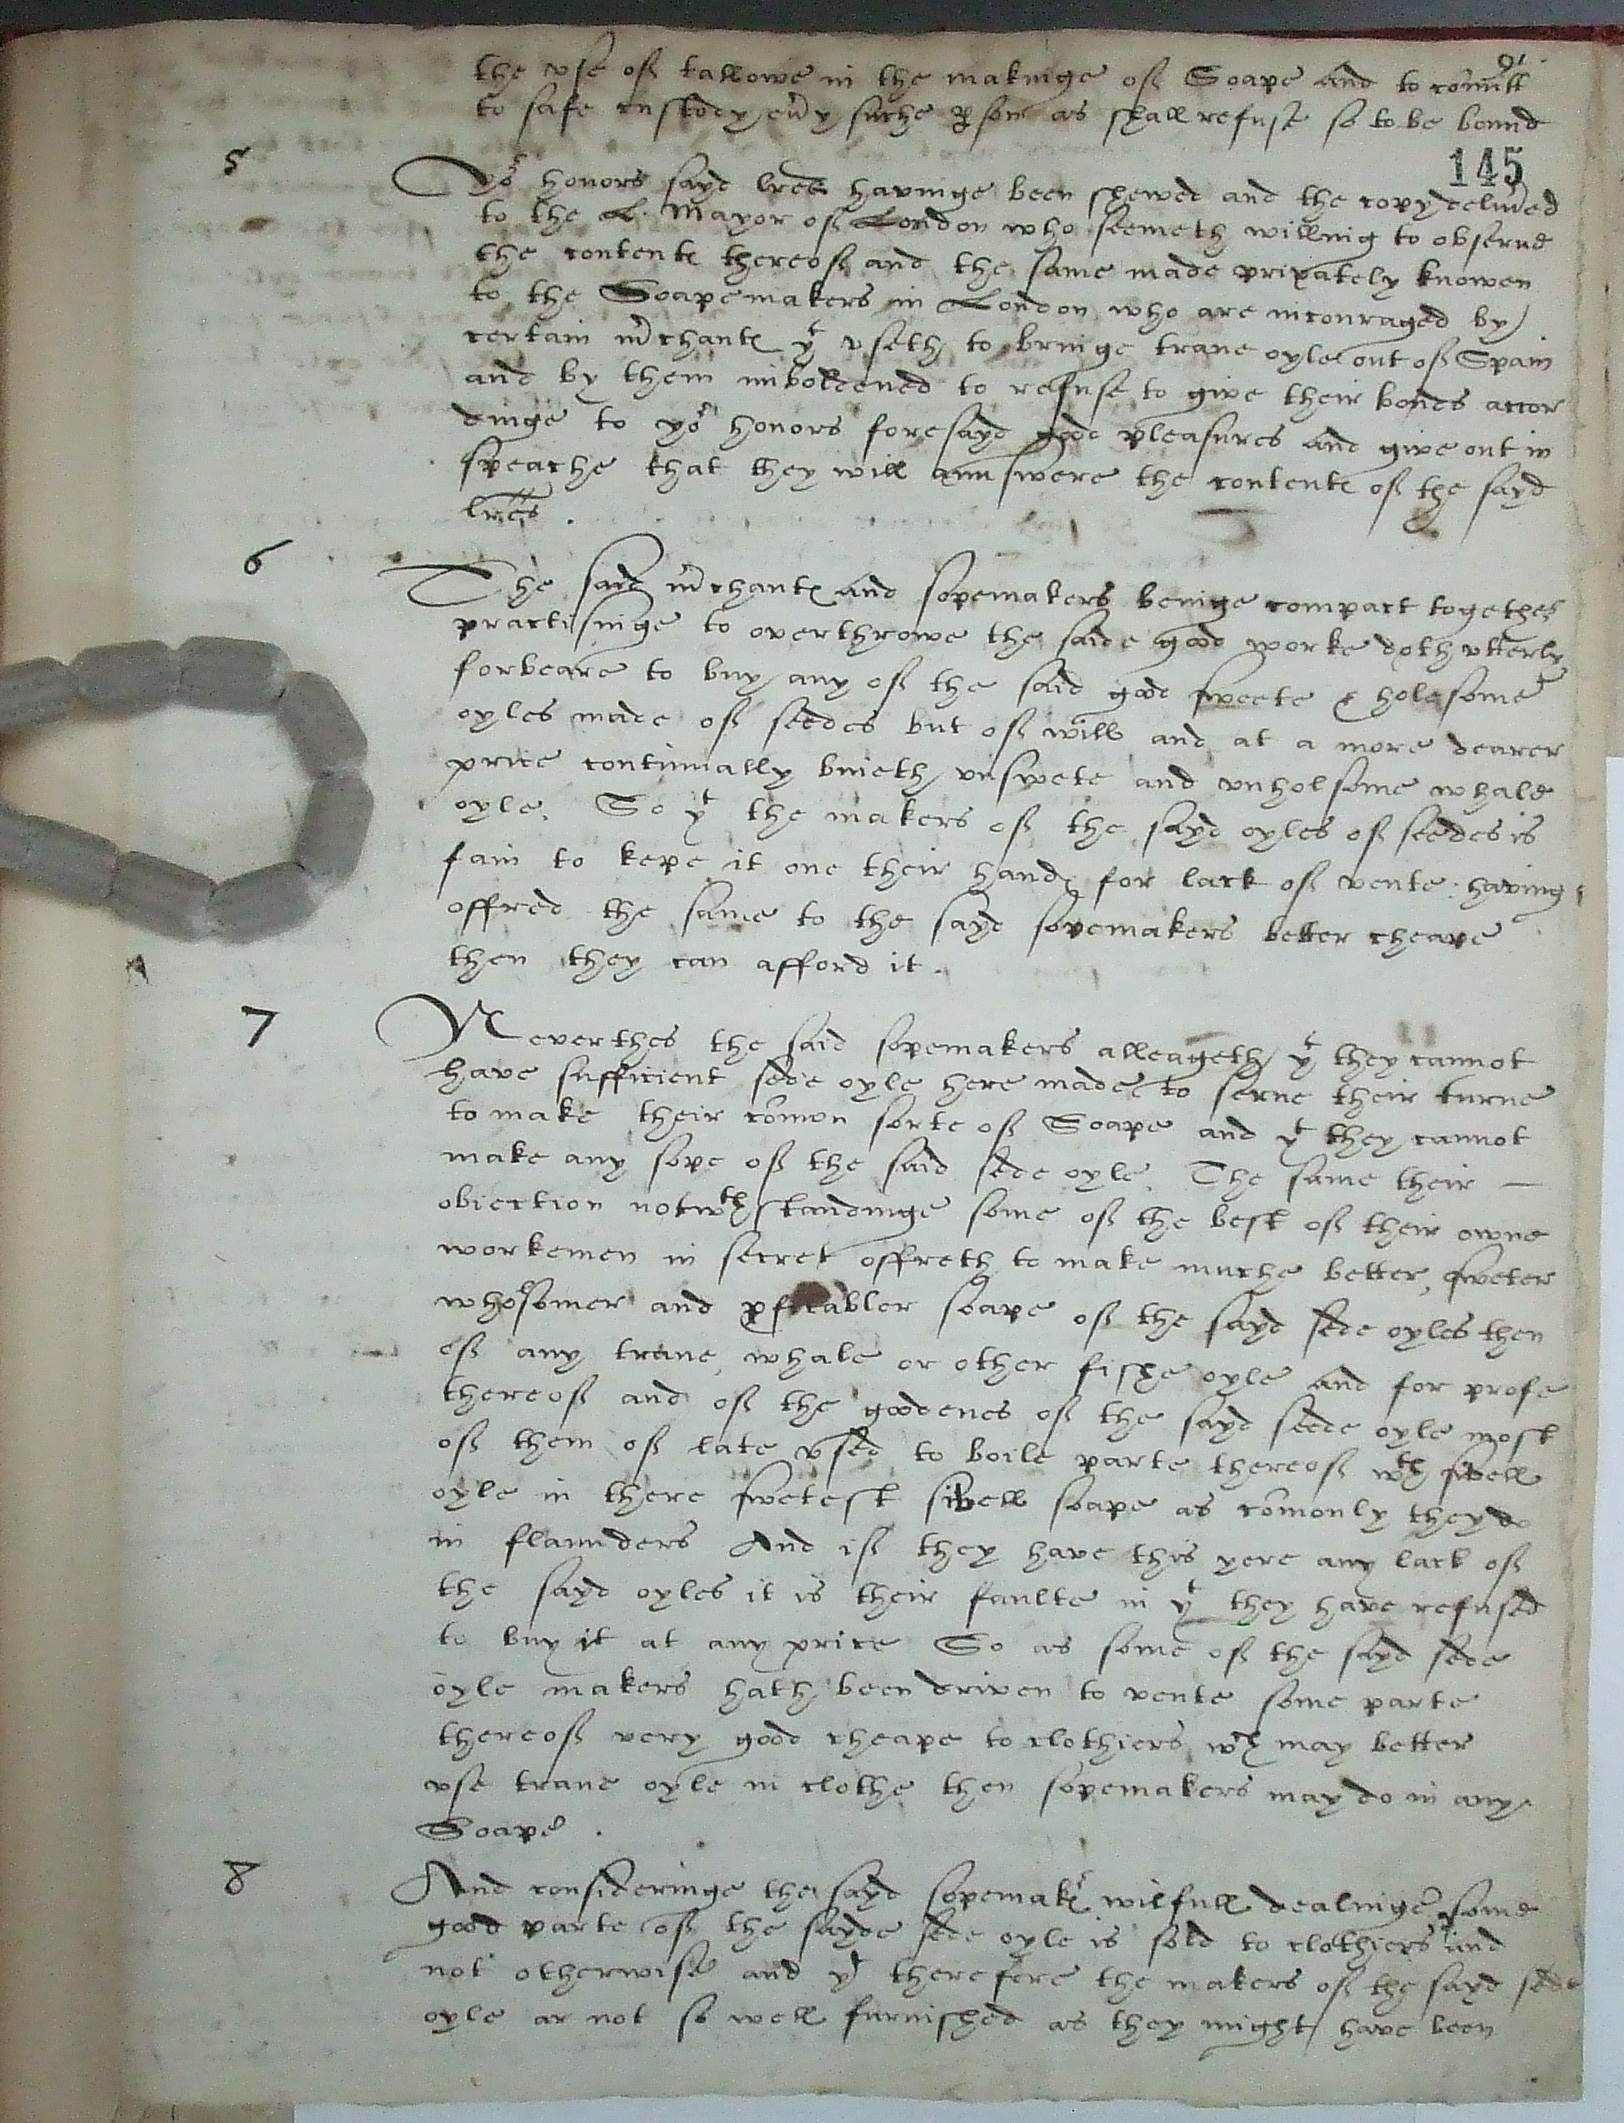 the vse of tallowe in the makinge of Soape and to comitt
to safe custody eu'y suche pson as shall refuse so to be bound
145
5 Yor honors sayd lres havinge been shewed and the copy deliu'ed
to the L. Mayor of London who seemeth willing to obserue
the contentes thereof and the same made privately knowen
to the Soapemakers in London who are incouraged by
certain m'chantes yt vseth to bringe trane oyle out of Spain
and by them imboldened to refuse to give their bondes accor
dinge to yor honors foresayd good pleasures and give out in
speache that they will aunswere the contentes of the sayd
lres.
6 The said m'chantes and sopemakers beinge compact together
practisinge to overthrowe the saide good worke doth vtterly
forbeare to buy any of the said good sweete & holesome
oyles made of seedes but of will and at a more dearer
price continually buieth vnswete and vnholsome whale
oyle. So yt the makers of the sayd oyles of seedes is
fain to kepe it one their handes for lack of vente having
offred the same to the sayd sopemakers better cheape
then they can afford it.
7 Neverthes the said sopemakers alleageth yt they cannot
have sufficient sede oyle here made to serue their turne
to make their comon sorte of Soape and yt they cannot
make any sope of the said sede oyle. The same their —
obiection notwth standinge some of the best of their owne
workemen in secret offreth to make muche better, sweter
wholsomer and pfitabler soape of the sayd sede oyles then
of any trane whale or other fishe oyle and for profe
thereof and of the goodenes of the sayd seede oyle most
of them of late vsed to boile parte thereof wth sivell
oyle in there swetest sivell soape as comonly they do
in flaunders And if they have this yere any lack of
the sayd oyles it is their faulte in yt they have refused
to buy it at any price So as some of the sayd sede
oyle makers hath been driven to vente some parte
thereof very good cheape to clothiers wch may better
vse trane oyle in clothe then sopemakers may do in any
Soape.
8 And consideringe the sayd sopemakers wilfull dealinge some
good parte of the sayde sede oyle is sold to clothiers and
not otherwise and yt therefore the makers of the sayd sede
oyle ar not so well furnished as they might have been